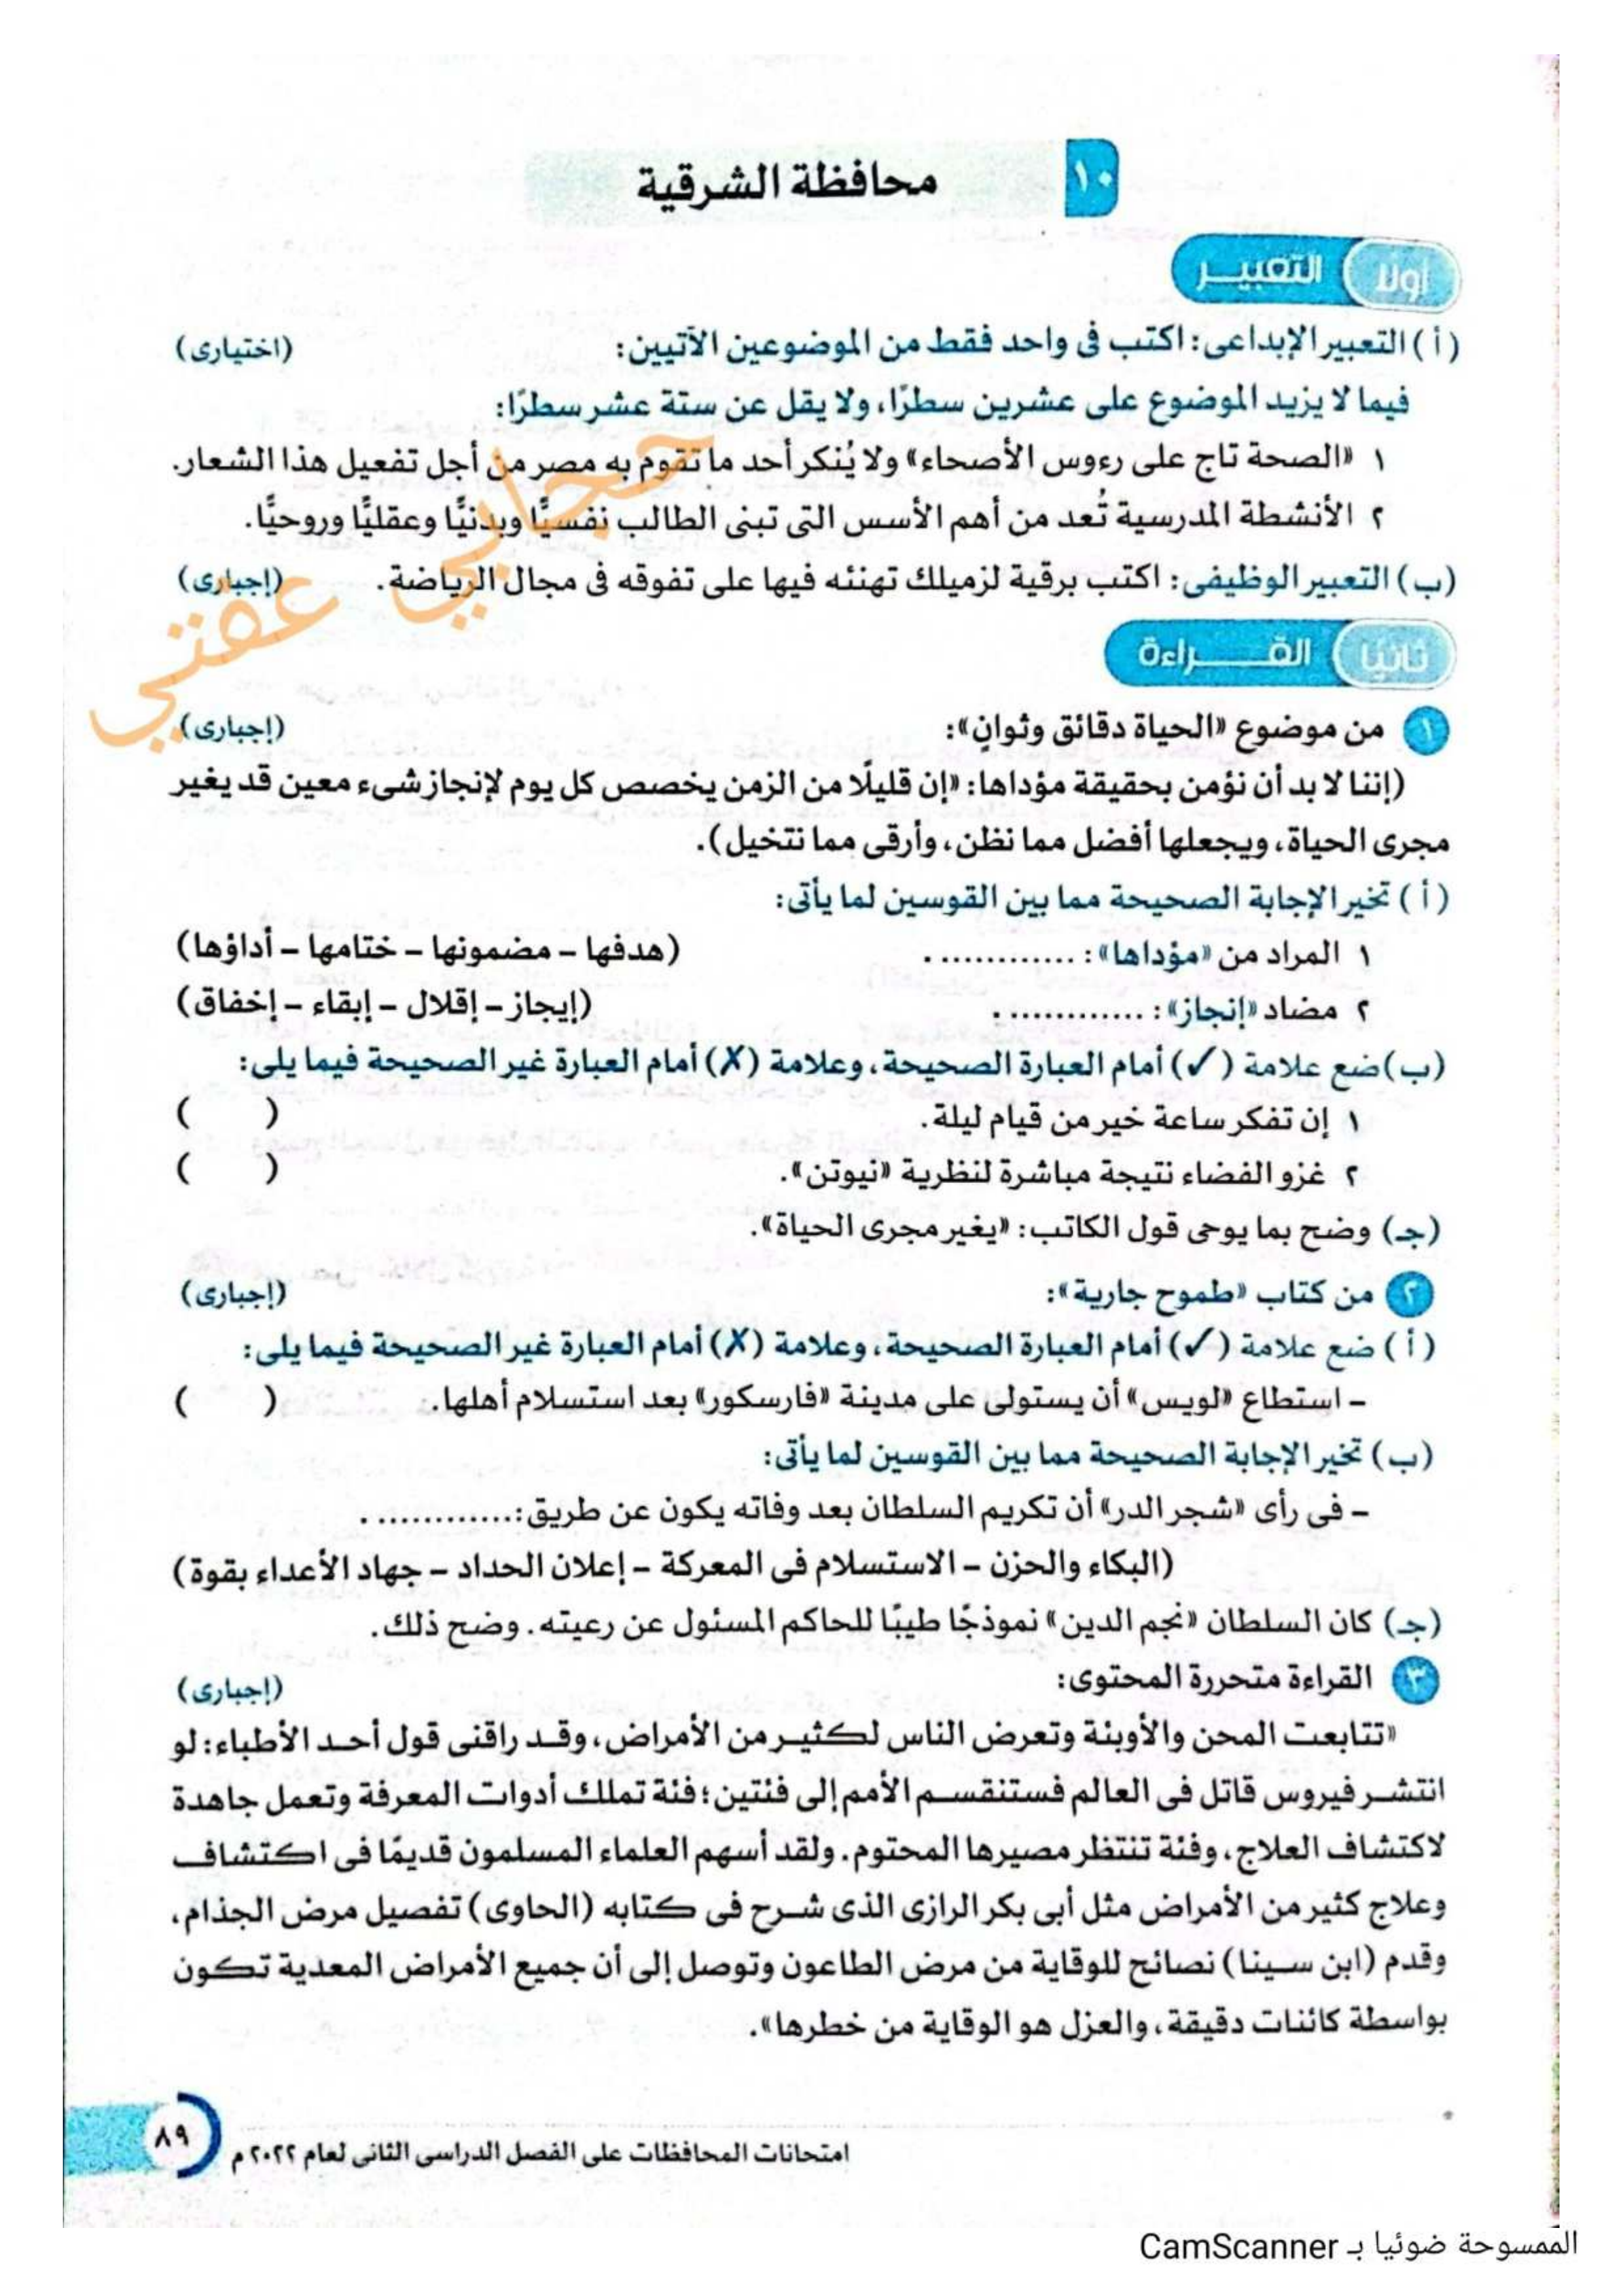 ١٠ محافظة الشرقية
أولا التعبيـر
(أ) التعبير الإبداعى: اكتب فى واحد فقط من الموضوعين الآتيين: (اختيارى)
فيما لا يزيد الموضوع على عشرين سطرًا، ولا يقل عن ستة عشر سطرًا:
١ «الصحة تاج على رءوس الأصحاء» ولا يُنكر أحد ما تقوم به مصر من أجل تفعيل هذا الشعار.
٢ الأنشطة المدرسية تُعد من أهم الأسس التى تبنى الطالب نفسيًّا وبدنيًّا وعقليًّا وروحيًّا.
(ب) التعبير الوظيفى: اكتب برقية لزميلك تهنئه فيها على تفوقه فى مجال الرياضة. (إجبارى)
حجابي عفتي
ثانيًا القـــراءة
١ من موضوع «الحياة دقائق وثوانٍ»: (إجبارى)
(إننا لا بد أن نؤمن بحقيقة مؤداها: «إن قليلًا من الزمن يخصص كل يوم لإنجاز شىء معين قد يغير
مجرى الحياة، ويجعلها أفضل مما نظن، وأرقى مما نتخيل).
(أ) تخير الإجابة الصحيحة مما بين القوسين لما يأتى:
١ المراد من «مؤداها»: ............. (هدفها – مضمونها – ختامها – أداؤها)
٢ مضاد «إنجاز»: ............. (إيجاز – إقلال – إبقاء – إخفاق)
(ب) ضع علامة (✓) أمام العبارة الصحيحة، وعلامة (✗) أمام العبارة غير الصحيحة فيما يلى:
١ إن تفكر ساعة خير من قيام ليلة. ( )
٢ غزو الفضاء نتيجة مباشرة لنظرية «نيوتن». ( )
(جـ) وضح بما يوحى قول الكاتب: «يغير مجرى الحياة».
٢ من كتاب «طموح جارية»: (إجبارى)
(أ) ضع علامة (✓) أمام العبارة الصحيحة، وعلامة (✗) أمام العبارة غير الصحيحة فيما يلى:
– استطاع «لويس» أن يستولى على مدينة «فارسكور» بعد استسلام أهلها. ( )
(ب) تخير الإجابة الصحيحة مما بين القوسين لما يأتى:
– فى رأى «شجر الدر» أن تكريم السلطان بعد وفاته يكون عن طريق: .............
(البكاء والحزن – الاستسلام فى المعركة – إعلان الحداد – جهاد الأعداء بقوة)
(جـ) كان السلطان «نجم الدين» نموذجًا طيبًا للحاكم المسئول عن رعيته. وضح ذلك.
٣ القراءة متحررة المحتوى: (إجبارى)
«تتابعت المحن والأوبئة وتعرض الناس لكثير من الأمراض، وقد راقنى قول أحد الأطباء: لو
انتشر فيروس قاتل فى العالم فستنقسم الأمم إلى فئتين؛ فئة تملك أدوات المعرفة وتعمل جاهدة
لاكتشاف العلاج، وفئة تنتظر مصيرها المحتوم. ولقد أسهم العلماء المسلمون قديمًا فى اكتشاف
وعلاج كثير من الأمراض مثل أبى بكر الرازى الذى شرح فى كتابه (الحاوى) تفصيل مرض الجذام،
وقدم (ابن سينا) نصائح للوقاية من مرض الطاعون وتوصل إلى أن جميع الأمراض المعدية تكون
بواسطة كائنات دقيقة، والعزل هو الوقاية من خطرها».
امتحانات المحافظات على الفصل الدراسى الثانى لعام ٢٠٢٢ م ٨٩
الممسوحة ضوئيا بـ CamScanner